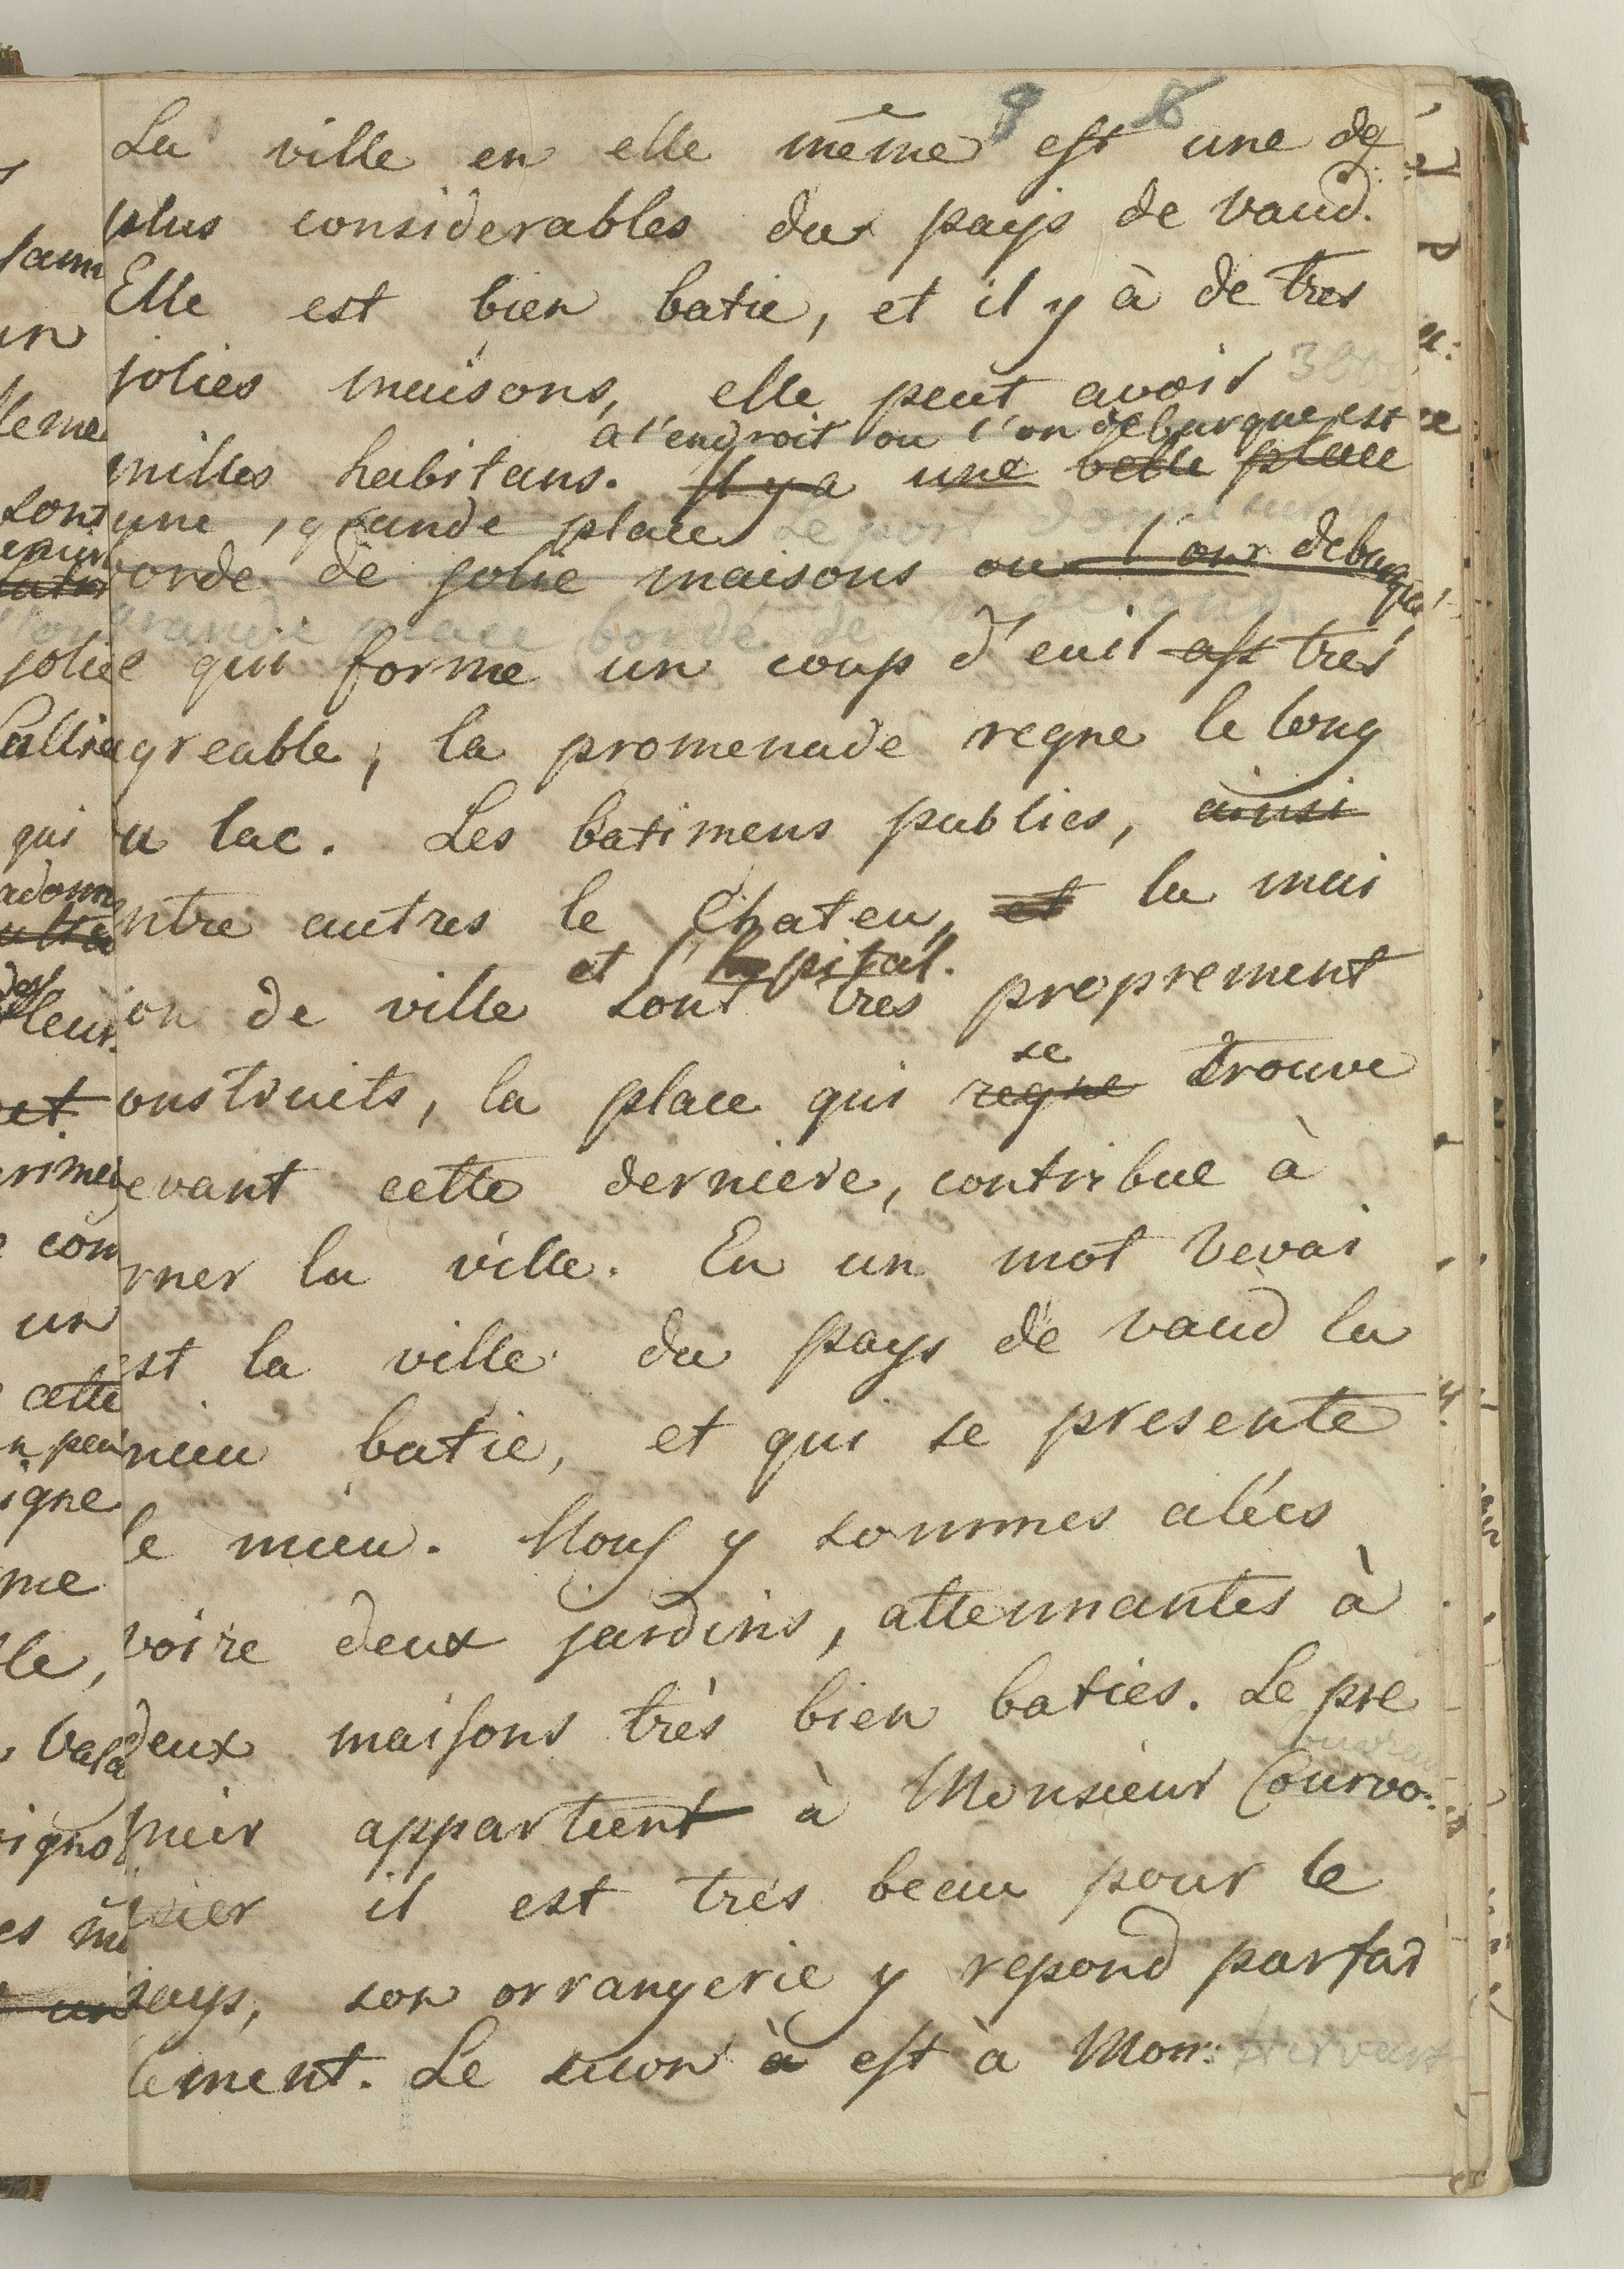 9 8
La ville en elle même est une des
plus considerables du pays de Vaud.
Elle est bien batie, et il y à de tres
jolies maisons, elle peut avoir 3000
milles habitans. Il y a une belle place
a l'endroit ou l'on debarque est
une grande place le port
bordé de jolie maisons ou l'on debarque
grande place bordé de
e qui forme un coup d'euil est tres
agreable, la promenade regne le long
du lac. Les batimens publics, ainsi
entre autres le Chateu, et la mai
et l'hopital.
son de ville sont tres proprement
se
construits, la place qui regne trouve
devant cette derniere, contribue à
orner la ville. En un mot Vevai
est la ville du pays de vaud la
mieu batie, et qui se presente
le mieu. Nous y sommes alées
voire deux jardins, attennantes à
deux maisons très bien baties. Le pre
mier appartient à Monsieur Courvo.
sier il est très beau pour le
pays, son orrangerie y repond parfai
tement. Le secon à est à Mon: